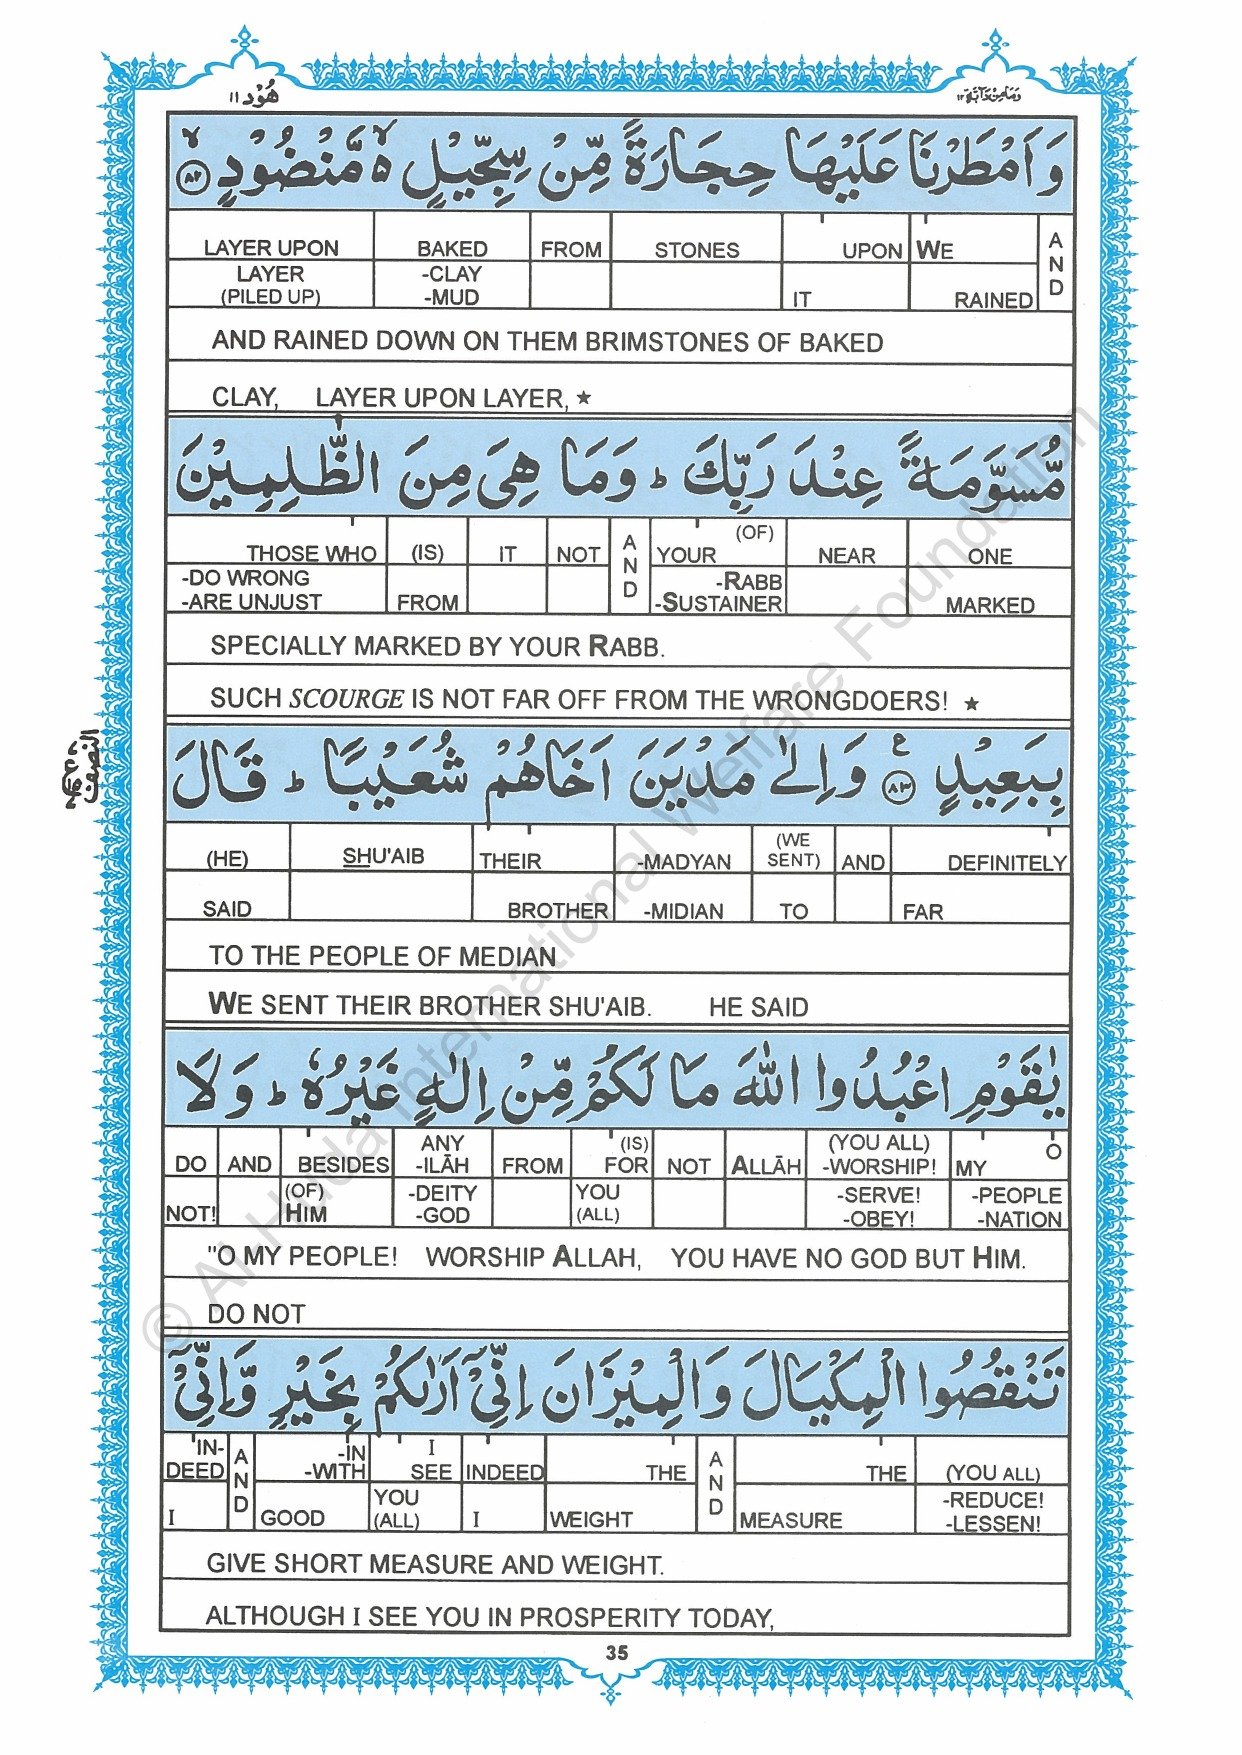 هُوْد ١١
وَمَا مِنْ دَآبَّةٍ ١٢
وَاَمْطَرْنَا عَلَيْهَا حِجَارَةً مِّنْ سِجِّيْلٍ ۙ مَّنْضُوْدٍ ۙ ﴿٨٢﴾
LAYER UPON BAKED FROM STONES UPON WE AND
LAYER -CLAY IT RAINED
(PILED UP) -MUD
AND RAINED DOWN ON THEM BRIMSTONES OF BAKED
CLAY, LAYER UPON LAYER, ★
مُّسَوَّمَةً عِنْدَ رَبِّكَ ؕ وَمَا هِىَ مِنَ الظّٰلِمِيْنَ
THOSE WHO (IS) IT NOT AND YOUR (OF) NEAR ONE
-DO WRONG FROM -RABB MARKED
-ARE UNJUST -SUSTAINER
SPECIALLY MARKED BY YOUR RABB.
SUCH SCOURGE IS NOT FAR OFF FROM THE WRONGDOERS! ★
بِبَعِيْدٍ ﴿٨٣﴾ ع وَاِلٰى مَدْيَنَ اَخَاهُمْ شُعَيْبًا ؕ قَالَ
النصف
(HE) SHU'AIB THEIR -MADYAN (WE SENT) AND DEFINITELY
SAID BROTHER -MIDIAN TO FAR
TO THE PEOPLE OF MEDIAN
WE SENT THEIR BROTHER SHU'AIB. HE SAID
يٰقَوْمِ اعْبُدُوا اللّٰهَ مَا لَكُمْ مِّنْ اِلٰهٍ غَيْرُهٗ ؕ وَلَا
DO AND BESIDES ANY -ILĀH FROM (IS) FOR NOT ALLĀH (YOU ALL) -WORSHIP! MY O
NOT! (OF) HIM -DEITY -GOD YOU (ALL) -SERVE! -OBEY! -PEOPLE -NATION
"O MY PEOPLE! WORSHIP ALLAH, YOU HAVE NO GOD BUT HIM.
DO NOT
تَنْقُصُوا الْمِكْيَالَ وَالْمِيْزَانَ اِنِّىْٓ اَرٰىكُمْ بِخَيْرٍ وَّاِنِّىْٓ
IN-DEED AND -IN -WITH I SEE INDEED THE AND THE (YOU ALL)
I GOOD YOU (ALL) I WEIGHT MEASURE -REDUCE! -LESSEN!
GIVE SHORT MEASURE AND WEIGHT.
ALTHOUGH I SEE YOU IN PROSPERITY TODAY,
35
© Al-Huda International Welfare Foundation